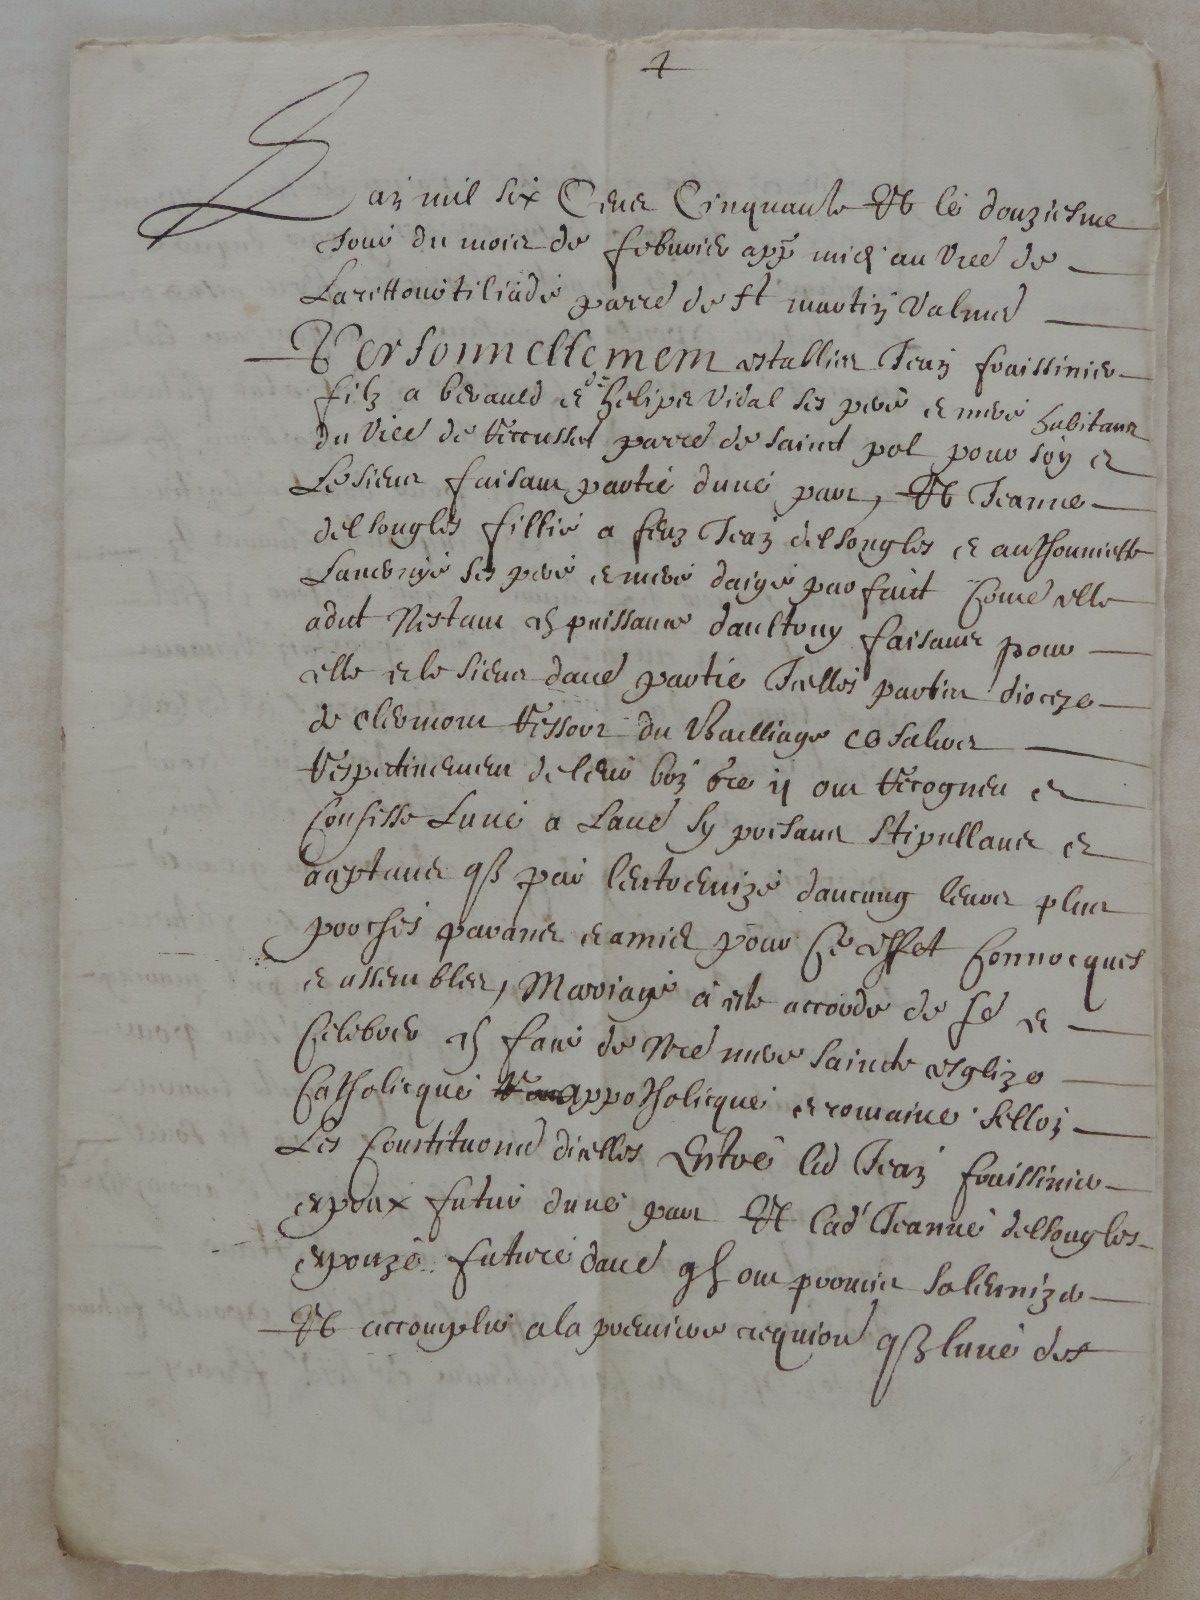 L an mil six Cens Cinquante Et le douziesme
Jour du mois de febvrier app midi au vied de
parre de st martin Valmer
Personnellement establier Jean fraissinier
filz a berauld et de helipe Vidal ses pere et mere habitans
du Vied de parre de saint pol pour soy et
Le sieur faisant partie dune part, Et Jeanne
delsongles fillie a feuz Jean delsongles et anthouniette
ses pere et mere daige parfaict Come elle
adit Nestant en puissance daultruy faisant pour
elle et le sieur daue partie Icelles parties dioceze
de clermont Ressort du Bailliage
respectivement de leur bon gre y ont recogneu et
Confisse Lune a Laue sy presans stipullans et
aceptans q par lentremize daucung leurs plus
proches parans et amis pour Ce effet Convocques
et assembles, Marriage a este accorde de se et
Celebrer en face de Nre mere saincte esglize
Catholicque appotholicque et romaine sellon
Les Constitutions dicelles Entre led Jean fraissinier
expoux futur dune part Et lad Jeanne delsongles
expouze future daue qlz ont promis solempnizer
Et accomplir a la premiere requion q lune des